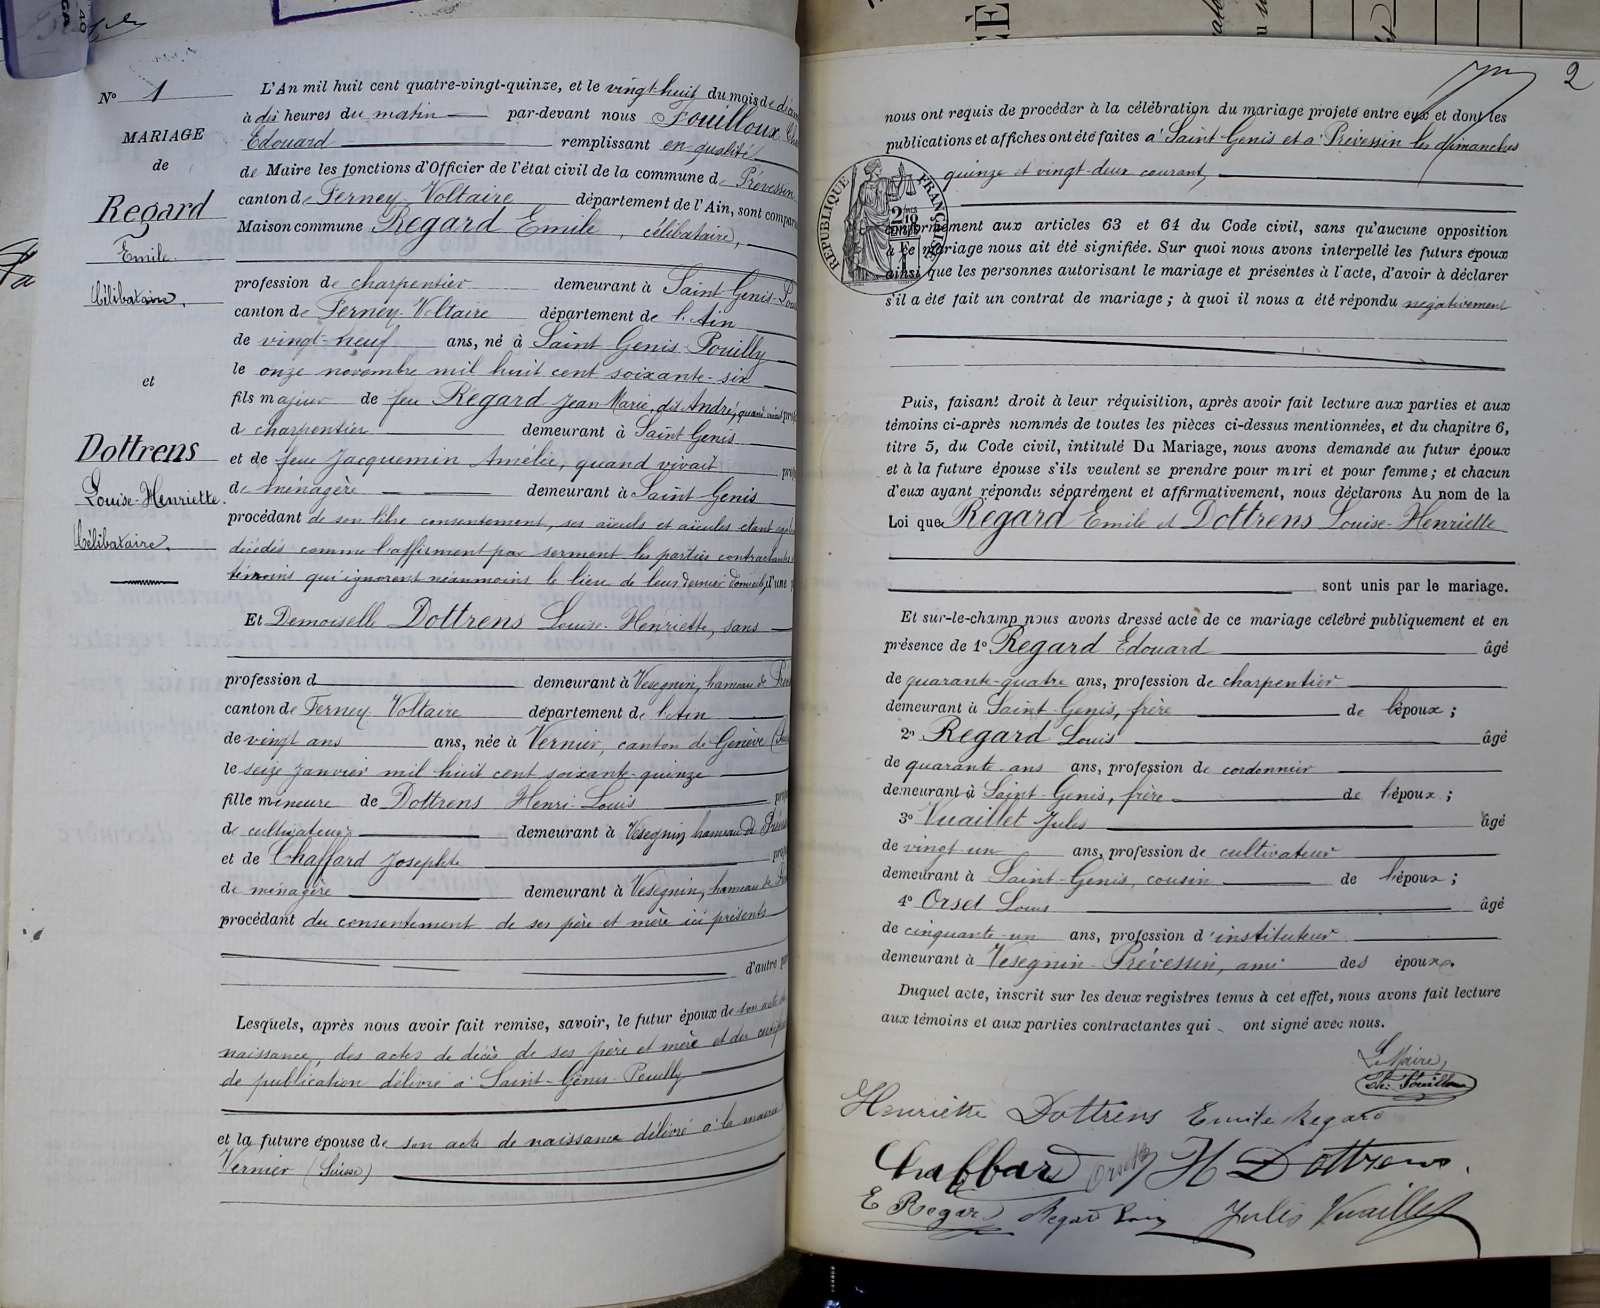 Nº 1
MARIAGE
de
Regard
Emile
Célibataire,
et
Dottrens
Louise-Henriette.
Célibataire.
L'An mil huit cent quatre-vingt-quinze, et le vingt-huit du mois de
à dix heures du matin par-devant nous Fouilloux
Edouard remplissant en qualité
de Maire les fonctions d'Officier de l'état civil de la commune de Prévessin
canton de Ferney-Voltaire département de l'Ain, sont compar
Maison commune Regard Emile, célibataire,
profession de charpentier demeurant à Saint-Genis-Poui
canton de Ferney-Voltaire département de l'Ain
de vingt-neuf ans, né à Saint Genis-Pouilly
le onze novembre mil huit cent soixante-six
fils majeur de feu Regard Jean Marie, dit André, quand vivait prof
d charpentier demeurant à Saint Genis
et de feue Jacquemin Amélie, quand vivait prof
de ménagère demeurant à Saint Genis
procédant de son libre consentement, ses aïeuls et aïeules étant
décédés comme l'affirment par serment les parties contractantes
témoins qui ignorent néanmoins le lieu de leur dernier domicile, d'une p
Et Demoiselle Dottrens Louise-Henriette, sans
profession d demeurant à Vesegnin, hameau de Pré
canton de Ferney-Voltaire département de l'Ain
de vingt ans ans, née à Vernier, canton de Genève (Sui
le seize janvier mil huit cent soixante-quinze
fille mineure de Dottrens Henri-Louis prof
de cultivateur demeurant à Vesegnin hameau de Préves
et de Chaffard Josephte prof
de ménagère demeurant à Vesegnin, hameau de
procédant du consentement de ses père et mère ici présents
d'autre par
Lesquels, après nous avoir fait remise, savoir, le futur époux de son acte de
naissance, des actes de décès de ses père et mère et des certif
de publication délivré à Saint-Genis-Pouilly
et la future épouse de son acte de naissance délivré à la mairie
Vernier (Suisse)
2
nous ont requis de procéder à la célébration du mariage projeté entre eux et dont les
publications et affiches ont été faites à Saint Genis et à Prévessin les dimanches
quinze et vingt-deux courant,
RÉPUBLIQUE FRANÇAISE
conformément aux articles 63 et 64 du Code civil, sans qu'aucune opposition
à ce mariage nous ait été signifiée. Sur quoi nous avons interpellé les futurs époux
ainsi que les personnes autorisant le mariage et présentes à l'acte, d'avoir à déclarer
s'il a été fait un contrat de mariage ; à quoi il nous a été répondu négativement
Puis, faisant droit à leur réquisition, après avoir fait lecture aux parties et aux
témoins ci-après nommés de toutes les pièces ci-dessus mentionnées, et du chapitre 6,
titre 5, du Code civil, intitulé Du Mariage, nous avons demandé au futur époux
et à la future épouse s'ils veulent se prendre pour mari et pour femme ; et chacun
d'eux ayant répondu séparément et affirmativement, nous déclarons Au nom de la
Loi que Regard Emile et Dottrens Louise-Henriette
sont unis par le mariage.
Et sur-le-champ nous avons dressé acte de ce mariage célébré publiquement et en
présence de 1º Regard Edouard âgé
de quarante-quatre ans, profession de charpentier
demeurant à Saint-Genis, frère de l'époux ;
2º Regard Louis âgé
de quarante ans ans, profession de cordonnier
demeurant à Saint-Genis, frère de l'époux ;
3º Vuaillet Jules âgé
de vingt-un ans, profession de cultivateur
demeurant à Saint-Genis, cousin de l'époux ;
4º Orset Louis âgé
de cinquante-un ans, profession d'instituteur
demeurant à Vesegnin-Prévessin, ami des époux.
Duquel acte, inscrit sur les deux registres tenus à cet effet, nous avons fait lecture
aux témoins et aux parties contractantes qui ont signé avec nous.
Le Maire,
Ch: Fouilloux
Henriette Dottrens Emile Regard
Chaffard Orset H Dottrens.
E Regard Regard Louis Jules Vuaillet